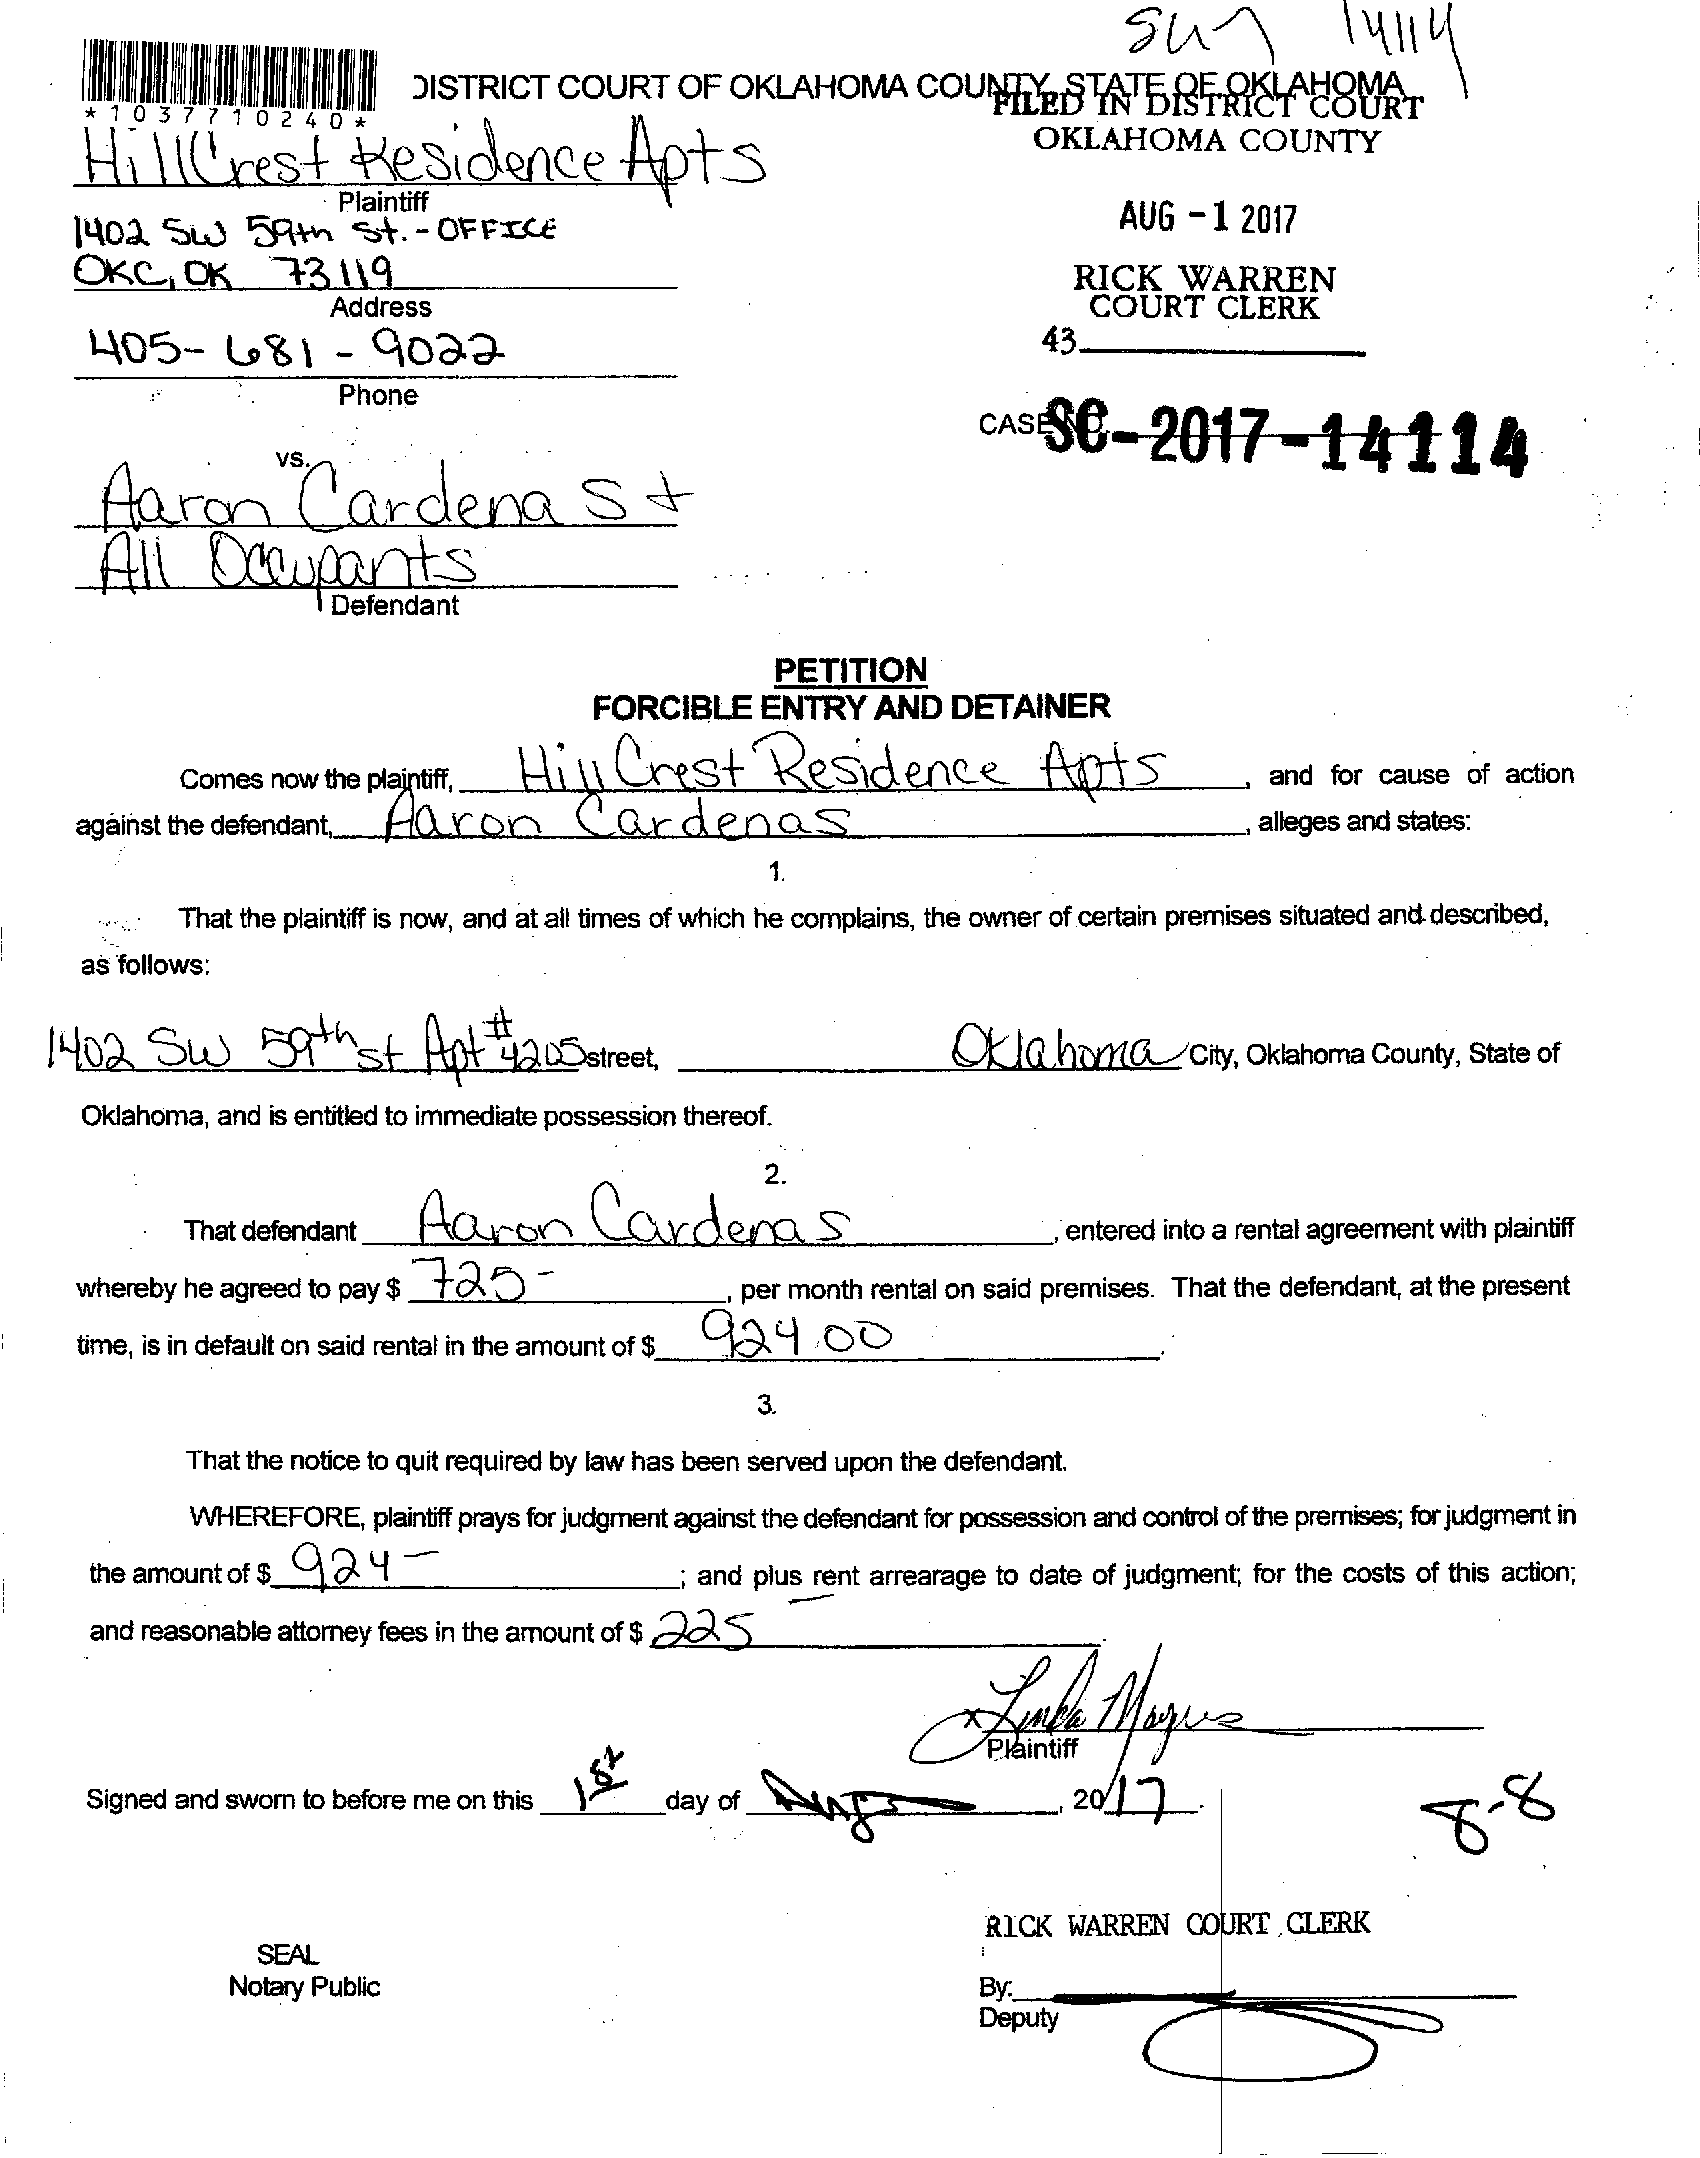 14114
DISTRICT COURT OF OKLAHOMA COUNTY, STATE OF OKLAHOMA
*1037710240*
FILED IN DISTRICT COURT
OKLAHOMA COUNTY
HillCrest Residence Apts
Plaintiff
1402 SW 59th St. - OFFICE
AUG -1 2017
OKC, OK 73119
Address
RICK WARREN
COURT CLERK
405-681-9022
43
Phone
CASE NO. SC-2017-14114
vs.
Aaron Cardenas +
All Occupants
Defendant
PETITION
FORCIBLE ENTRY AND DETAINER
Comes now the plaintiff, HillCrest Residence Apts, and for cause of action
against the defendant, Aaron Cardenas, alleges and states:
1.
That the plaintiff is now, and at all times of which he complains, the owner of certain premises situated and described,
as follows:
1402 SW 59th st Apt #4205 street, Oklahoma City, Oklahoma County, State of
Oklahoma, and is entitled to immediate possession thereof.
2.
That defendant Aaron Cardenas, entered into a rental agreement with plaintiff
whereby he agreed to pay $ 725-, per month rental on said premises. That the defendant, at the present
time, is in default on said rental in the amount of $ 924.00.
3.
That the notice to quit required by law has been served upon the defendant.
WHEREFORE, plaintiff prays for judgment against the defendant for possession and control of the premises; for judgment in
the amount of $ 924-; and plus rent arrearage to date of judgment; for the costs of this action;
and reasonable attorney fees in the amount of $ 225-.
x Linda
Plaintiff
Signed and sworn to before me on this 1st day of Aug, 2017.
8-8
RICK WARREN COURT CLERK
SEAL
Notary Public
By:
Deputy